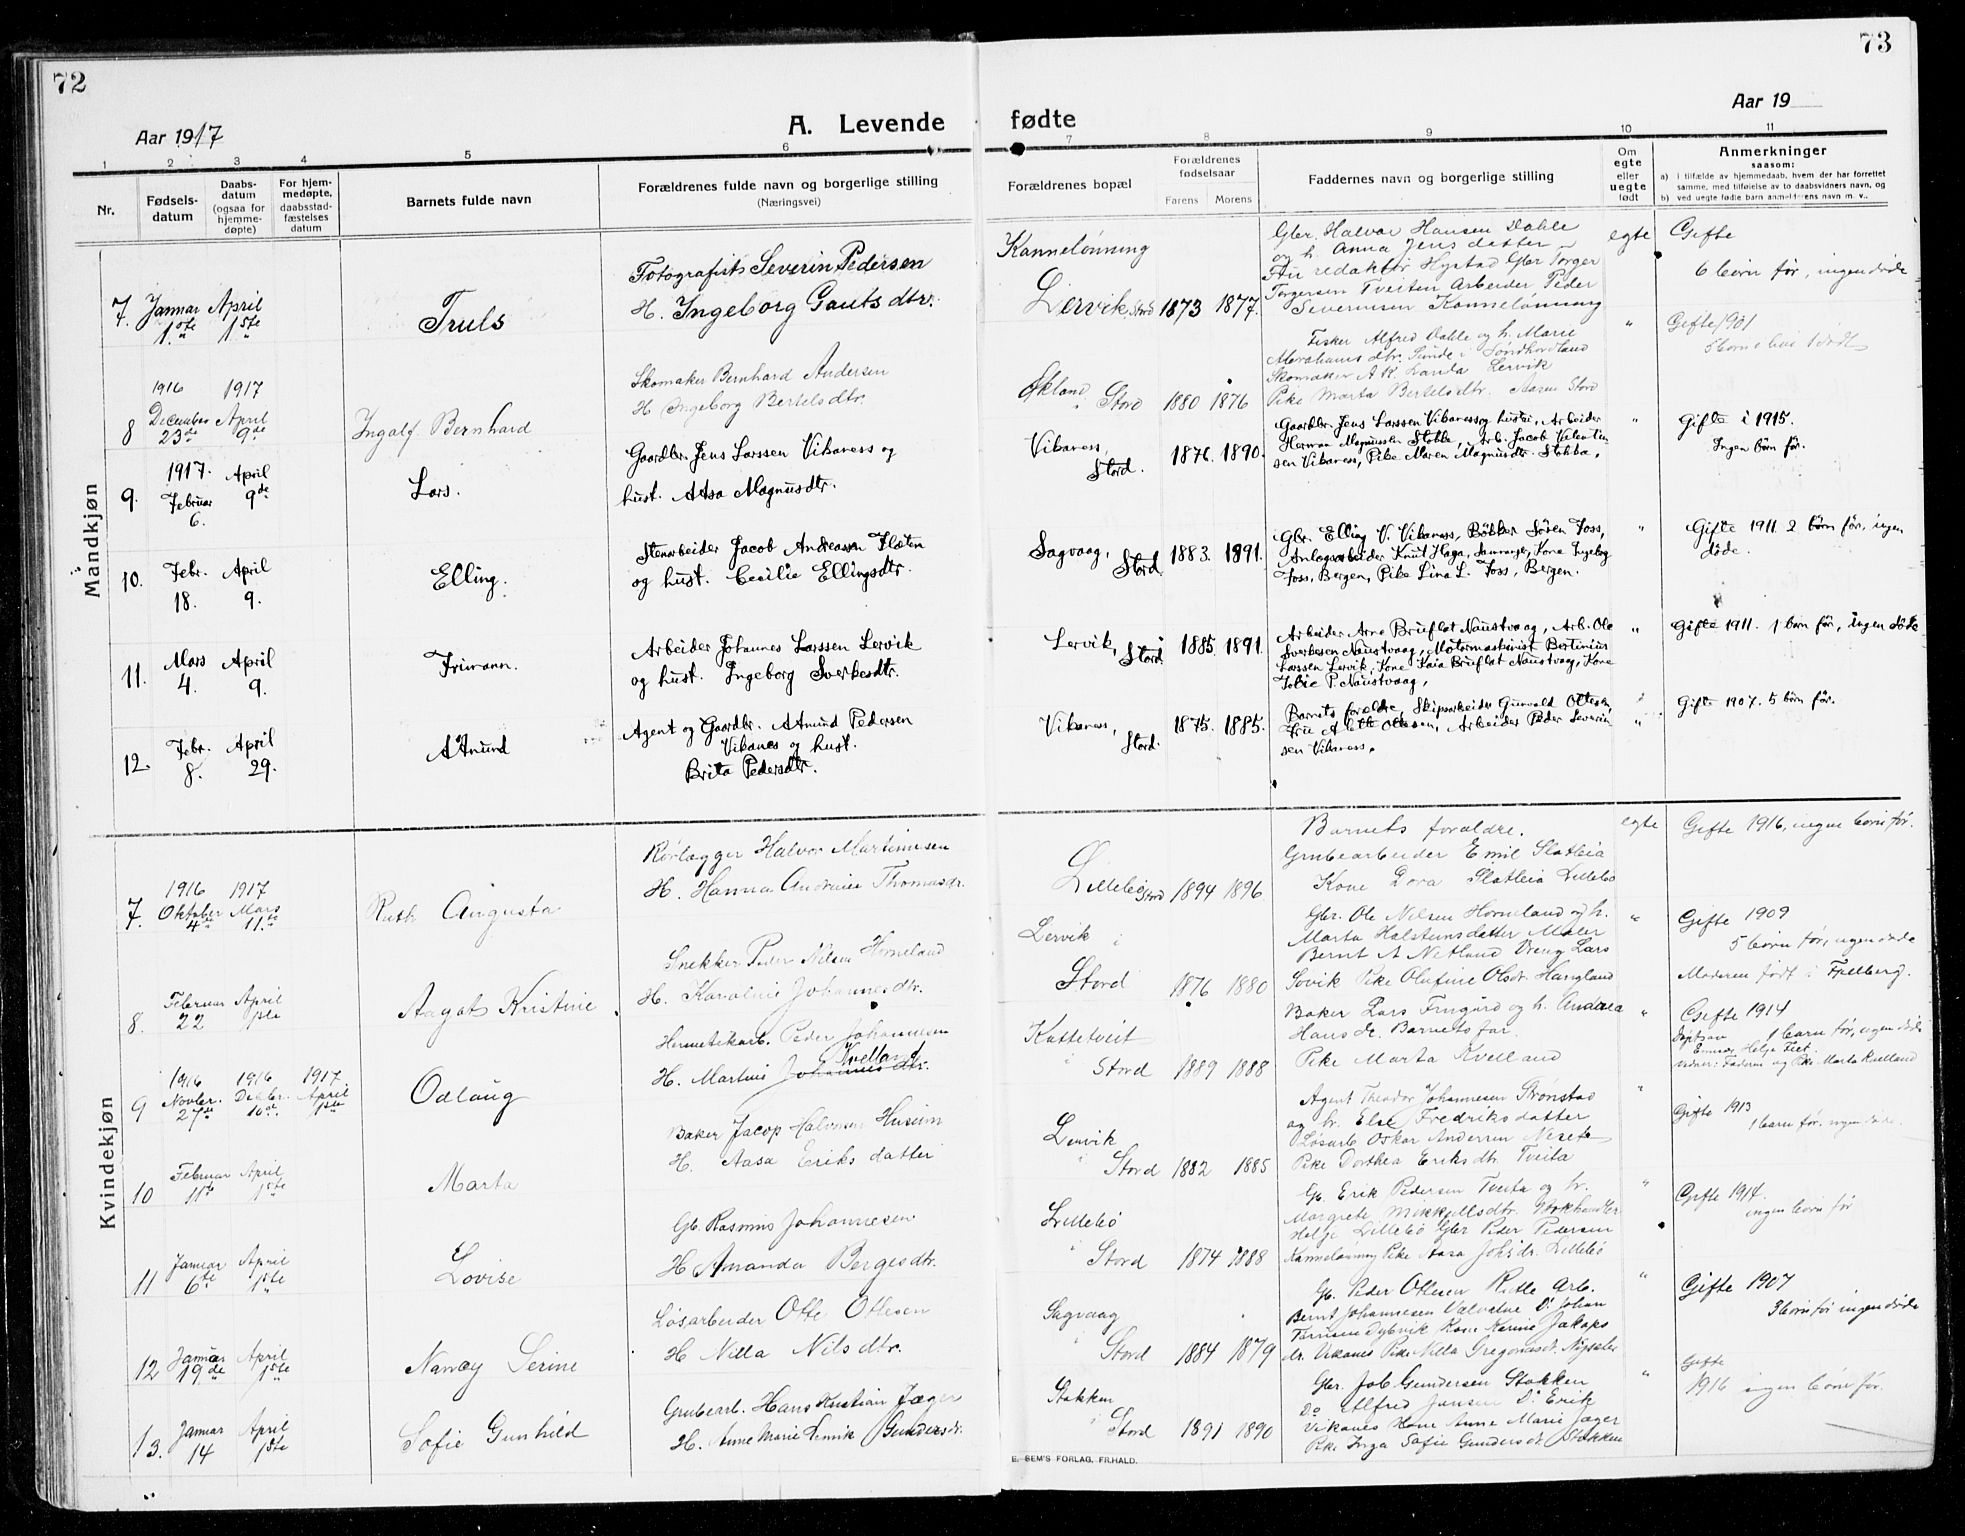 72
73
Aar 1917
A. Levende fødte
Aar 19
1 2 3 4 5 6 7 8 9 10 11
Nr.
Fødsels-
datum
Daabs-
datum
(ogsaa for
hjemme-
døpte)
For hjem-
medøpte,
daabsstad-
fæstelses
datum
Barnets fulde navn
Forældrenes fulde navn og borgerlige stilling
(Næringsvei)
Forældrenes bopæl
Forældrenes
fødselsaar
Farens Morens
Faddernes navn og borgerlige stilling
Om
egte
eller
uegte
født
Anmerkninger
saasom:
a) I tilfælde av hjemmedaab, hvem der har forrettet
samme, med tilføielse av to daabsvidners navn, og
b) ved uegte fødte barn anmelderens navn m. v.,
Mandkjøn
7. Januar 1ste April 1ste
Truls
Fotografist Severin Pedersen
H. Ingeborg Gautsdtr.
Kannelønning
Lervik Stord 1873 1877.
Gbr. Halvor Hansen Dahle
og h. Anna Jensdatter
Fru redaktør Hystad Gbr Torger
Torgersen Tveiten Arbeider Peder
Severinsen Kannelønning
egte
Gifte
6 børn før, ingen døde
8 1916 December 23de 1917 April 9de
Ingalf Bernhard
Skomaker Bernhard Andersen
H Ingeborg Bertelsdtr.
Økland Stord 1880 1876
Fisker Alfred Dahle og h. Marie
Abrahamsdtr. Sunde i Søndhordland
Skomaker A K. Lervik
Pike Marta Bertelsdtr. Aasen Stord
"
Gifte 1901
9. 1917. Februar 6. April 9de
Lars.
Gaardbr. Jens Larssen Vikaness og
hust. Aasa Magnusdtr.
Vikaness, Stord. 1876. 1890.
Gaardbr. Jens Larssen Vikaness og hustru, Arbeider
Herman Magnussen Stokke, Arb. Jacob Valentin
sen Vikaness, Pike Maren Magnusdtr. Stokke.
"
Gifte i 1915.
Ingen børn før.
10. Febr. 18. April 9.
Elling.
Stenarbeider Jacob Andreassen Flaten
og hust. Cecilie Ellingsdtr.
Sagvaag, Stord. 1883. 1891.
Gbr. Elling V. Vikaness, Bøkker Søren Foss,
Anlægsarbeider Knut Haga, Kone Ingeborg
Foss, Bergen, Pike Lina L. Foss, Bergen.
"
Gifte 1911 2 børn før, ingen
døde.
11. Mars 4. April 9.
Frimann.
Arbeider Johannes Larssen Lervik
og hust. Ingeborg Sverkesdtr.
Lervik, Stord. 1885. 1891.
Arbeider Arne Bruflat Naustvaag, Arb. Ole
Sverkesen Naustvaag, Motormaskinist Bertinius
Larssen Lervik, Kone Kaia Bruflat Naustvaag, Kone
P. Naustvaag,
"
Gifte 1911. 1 barn før, ingen døde
12. Febr. 8. April 29.
Amund
Agent og Gaardbr. Amund Pedersen
Vikanes og hust.
Brita Pedersdtr.
Vikaness, Stord. 1875. 1885.
Barnets forældre, Skipsarbeider Gunvald Ottesen,
Fru Alette Ottesen, Arbeider Peder Severin
sen Vikaness.
"
Gifte 1907. 5 børn før.
Kvindekjøn
7. 1916 Oktober 4de 1917 Mars 11te
Ruth Augusta
Rørlægger Halvor Martinusen
H. Hanna Andrine Thomasdr.
Lillebø Stord 1894 1896
Barnets forældre.
Grubearbeider Emil Slatleia
Kone Dora Slatleia Lillebø
egte
Gifte 1916, ingen børn før.
8. Februar 22 April 1ste
Aagot Kristine
Snekker Peder Nilsen Horneland
H. Karoline Johannesdtr.
Lervik i
Stord 1876 1880
Gbr. Ole Nilsen Horneland og h.
Marta Halsteinsdatter Maler
Bernt A Netland Dreng Lars
Sovik Pike Olufine Olsdr. Haugland
"
Gifte 1909
5 børn før, ingen døde
Moderen født i Fjelberg.
9 1916 Novbr. 27de 1916 Decbr. 10de 1917. April 1ste
Odlaug
Hermetikarb. Peder Johannesen
Kvelland
H. Martine Johannesdtr.
Kattetveit
i Stord 1889 1888
Baker Lars Frugård og h. Andrea
Hansdr. Barnets far.
Pike Marta Kvelland
"
Gifte 1914
1 barn før, ingen døde
Faderen og Pike Marta Kvelland
10 Februar 11te April 1ste
Marta
Baker Jacop Halvorsen Huseim
H. Aasa Eriksdatter
Lervik
i Stord 1882 1885
Agent Theodor Johannesen Strønstad
og h. Else Fredriksdatter
Løsarb Oskar Andersen Nesete
Pike Dorthea Eriksdtr. Tveita
"
Gifte 1913
1 barn før, ingen døde.
11 Januar 6te April 1ste
Lovise
Gb. Rasmus Johannesen
H Amanda Bergesdtr.
Lillebø
i Stord 1874 1888
Gb. Erik Pedersen Tveita og h.
Margrete Mikkelsdtr.
Helje Lillebø Gbr Peder Pedersen
Kannelønning Pike Aasa Johsdr. Lillebø
"
Gifte 1914.
ingen børn før
12 Januar 19de April 1ste
Nancy Serine
Løsarbeider Otto Ottesen
H Nilla Nilsdtr.
Sagvaag
i Stord 1884 1879
Gb. Peder Ottesen Arb.
Bernt Johannesen Valvatne Do Johan
Dybvik Kone Karine Jakops
dr. Vikanes Pike Nilla Gregoriusdr.
"
Gifte 1907
3 børn før ingen døde
13. Januar 14 April 1ste
Sofie Gunhild
Grubearb. Hans Kristian Jæger
H. Anne Marie Gundersdr.
Stokken
i Stord 1891 1890
Gbr. Job Gundersen Stokken
Do Alfred Jensen Do Erik
Vikanes Kone Anne Marie Jæger
Pike Inga Sofie Gundersdr. Stokken
"
Gifte
1916 ingen børn før.
E. SEM'S FORLAG, FR.HALD.